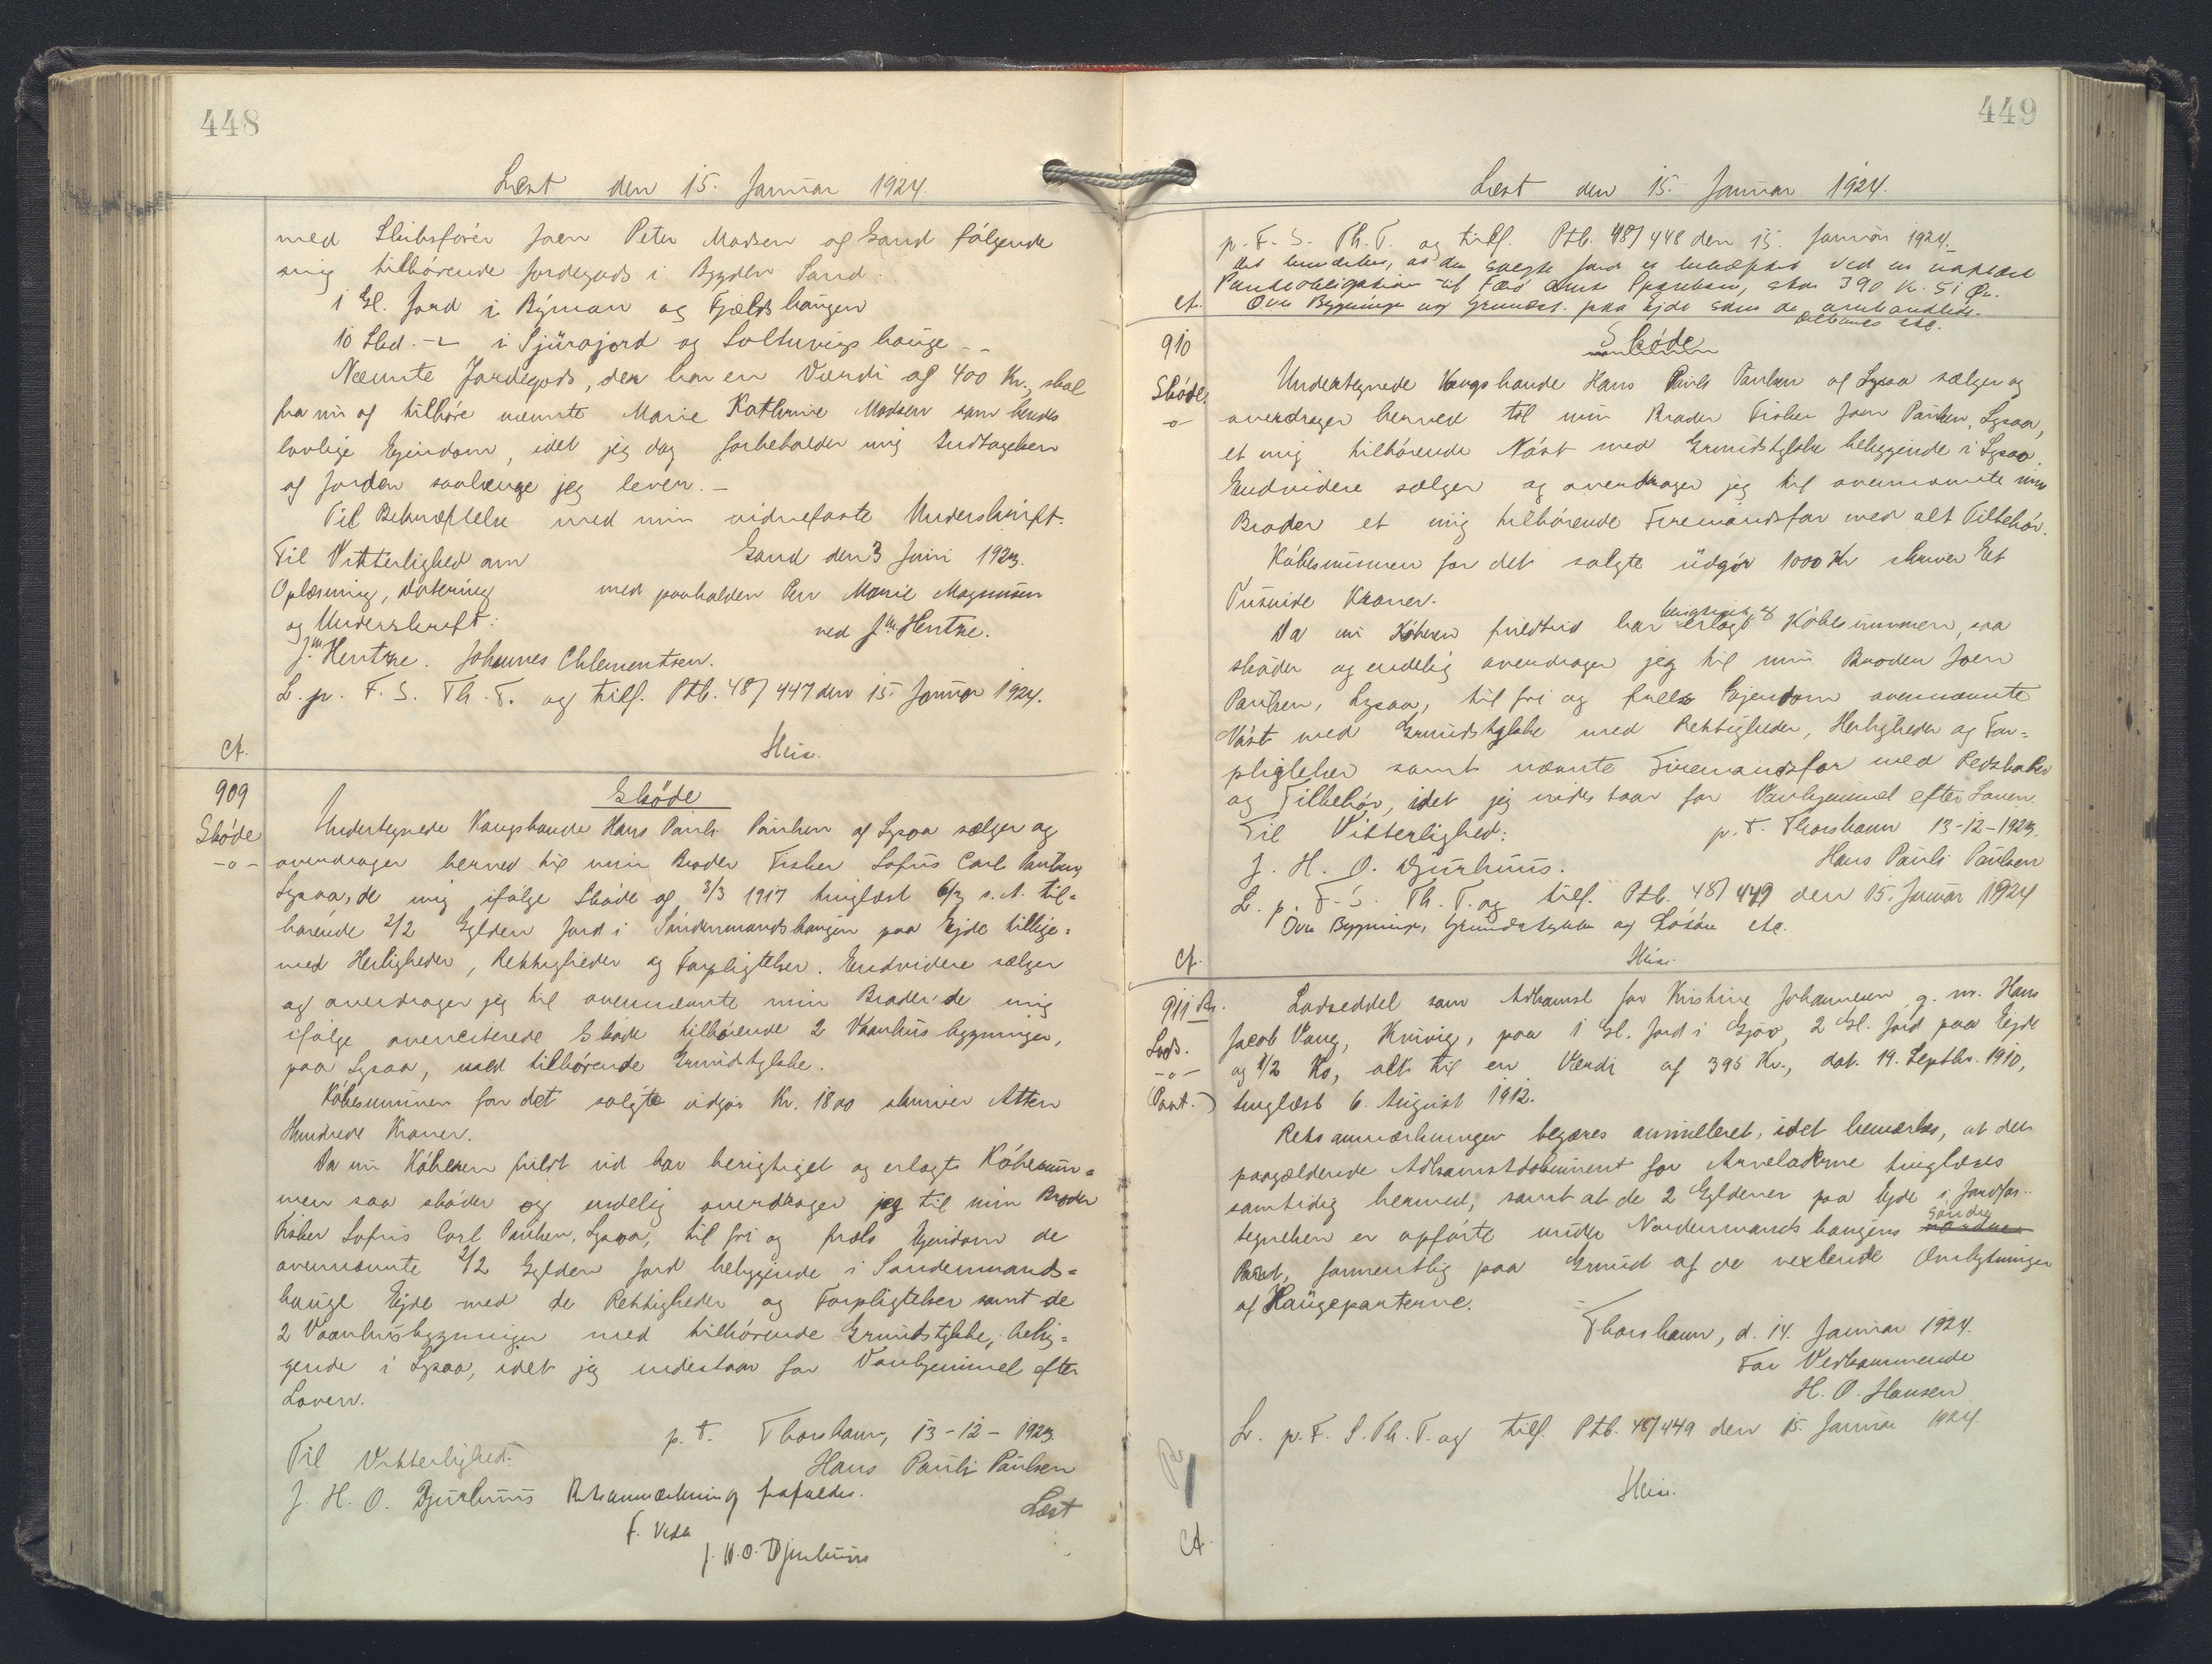 448
Læst den 15. Januar 1924.
med Skibsfører Joen Peter Madsen af Sand følgende
mig tilhørende Jordegods i Bygden Sand:
1 Gl. Jord i Býman og Fjældshaugen
10 Skd. -"- i Sjúrajord og Soltuvigs hauge --
Nævnte Jordegods, der har en Værdi af 400 Kr., skal
fra nu af tilhøre nævnte Marie Kathrine Madsen som hendes
lovlige Ejendom, idet jeg dog forbeholder mig Indtagelsen
af Jorden saalænge jeg lever. -
Til Bekræftelse med min vidnefaste Underskrift.
Til Vitterlighed om Sand den 3 Juni 1923.
Oplæsning, Datering med paaholden Pen Marie Magnussen
og Underskrift: ved Jm Hentze.
Jm Hentze. Johannes Chlementsen.
L. p. F. S. Th. T. og tilf. Ptb. 48/447 den 15. Januar 1924.
Ct.
909
Skøde
-o-
Skøde
Undertegnede Kongsbonde Hans Pauli Paulsen af Lysaa sælger og
overdrager herved til min Broder Fisker Sofus Carl Paulsen,
Lysaa, de mig ifølge Skøde af 3/3 1917 tinglæst 6/3 s. A. til=
hørende 2/2 Gylden Jord i Søndermandshaugen paa Ejde tillige=
med Herligheder, Rettigheder og Forpligtelser. Endvidere sælger
og overdrager jeg til ovennævnte min Broder de mig
ifølge ovenciterede Skøde tilhørende 2 Vaanhusbygninger,
paa Lysaa, med tilhørende Grundstykke.
Købesummen for det solgte udgør Kr. 1800 skriver Atten
Hundrede Kroner.
Da nu Køberen fuldt ud har berigtiget og erlagt Købesum=
men saa skøder og endelig overdrager jeg til min Broder
Fisker Sofus Carl Paulsen, Lysaa, til fri og frels Ejendom de
ovennævnte 2/2 Gylden Jord beliggende i Søndermands=
hauge Ejde med de Rettigheder og Forpligtelser samt de
2 Vaanhusbygninger med tilhørende Grundstykke, belig=
gende i Lysaa, idet jeg indestaar for Vanhjemmel efter
Loven.
p. t. Thorshavn, 13-12-1923
Til Vitterlighed: Hans Pauli Paulsen
J. H. O. Djurhuus Retsanmærkning frafaldes. Læst
F. Vedk
J. H. O. Djurhuus
449
Læst den 15. Januar 1924.
p. F. S. Th. T. og tilf. Ptb. 48/448 den 15. Januar 1924.
Det bemærkes, at den solgte Jord er behæftet ved en uaflæst
Pantobligation til Færø Amts Sparekasse, stor 390 Kr. 51 Øre.
Ct. Over Bygninger og Grundst. paa Ejde som de omhandlede
910
Skøde.
-o-
Skøde
Undertegnede Kongsbonde Hans Pauli Paulsen af Lysaa sælger og
overdrager herved til min Broder Fisker Joen Paulsen, Lysaa,
et mig tilhørende Nøst med Grundstykke beliggende i Lysaa.
Endvidere sælger og overdrager jeg til ovennævnte min
Broder et mig tilhørende Firemandsfar med alt Tilbehør.
Købesummen for det solgte udgør 1000 Kr skriver Et
Tusinde Kroner.
Da nu Køberen fuldtud har berigtiget og erlagt Købesummen, saa
skøder og endelig overdrager jeg til min Broder Joen
Paulsen, Lysaa, til fri og frels Ejendom ovennævnte
Nøst med Grundstykke med Rettigheder, Herligheder og For=
pligtelser samt nævnte Firemandsfar med Redskaber
og Tilbehør, idet jeg indestaar for Vanhjemmel efter Loven.
Til Vitterlighed: p. t. Thorshavn 13-12-1923.
J. H. O. Djurhuus. Hans Pauli Paulsen
L. p. F. S. Th. T. og tilf. Ptb. 48/449 den 15. Januar 1924
Over Bygninger, Grundstykke og Løsøre etc.
Ct.
911
Lods.
-o-
(Pant.)
Lodseddel som Adkomst for Kristine Johannesen g. m. Hans
Jacob Vang, Knivig, paa 1 Gl. Jord i Gjov, 2 Gl. Jord paa Ejde
og 1/2 Ko, alt til en Værdi af 395 Kr., dat. 19. Septbr. 1910,
tinglæst 6. August 1912.
Retsanmærkningen begæres annulleret, idet bemærkes, at det
paagældende Adkomstdokument for Arveladerne tinglæses
samtidig hermed, samt at de 2 Gyldener paa Ejde i Jordfor-
tegnelsen er opførte under Nordermandshaugens Søndre
Part, formentlig paa Grund af de vexlende Ombytninger
af Haugeparterne.
Thorshavn, d. 14. Januar 1924.
For Vedkommende
H. O. Hansen
L. p. F. S. Th. T. og tilf. Ptb. 48/449 den 15. Januar 1924.
Ct.